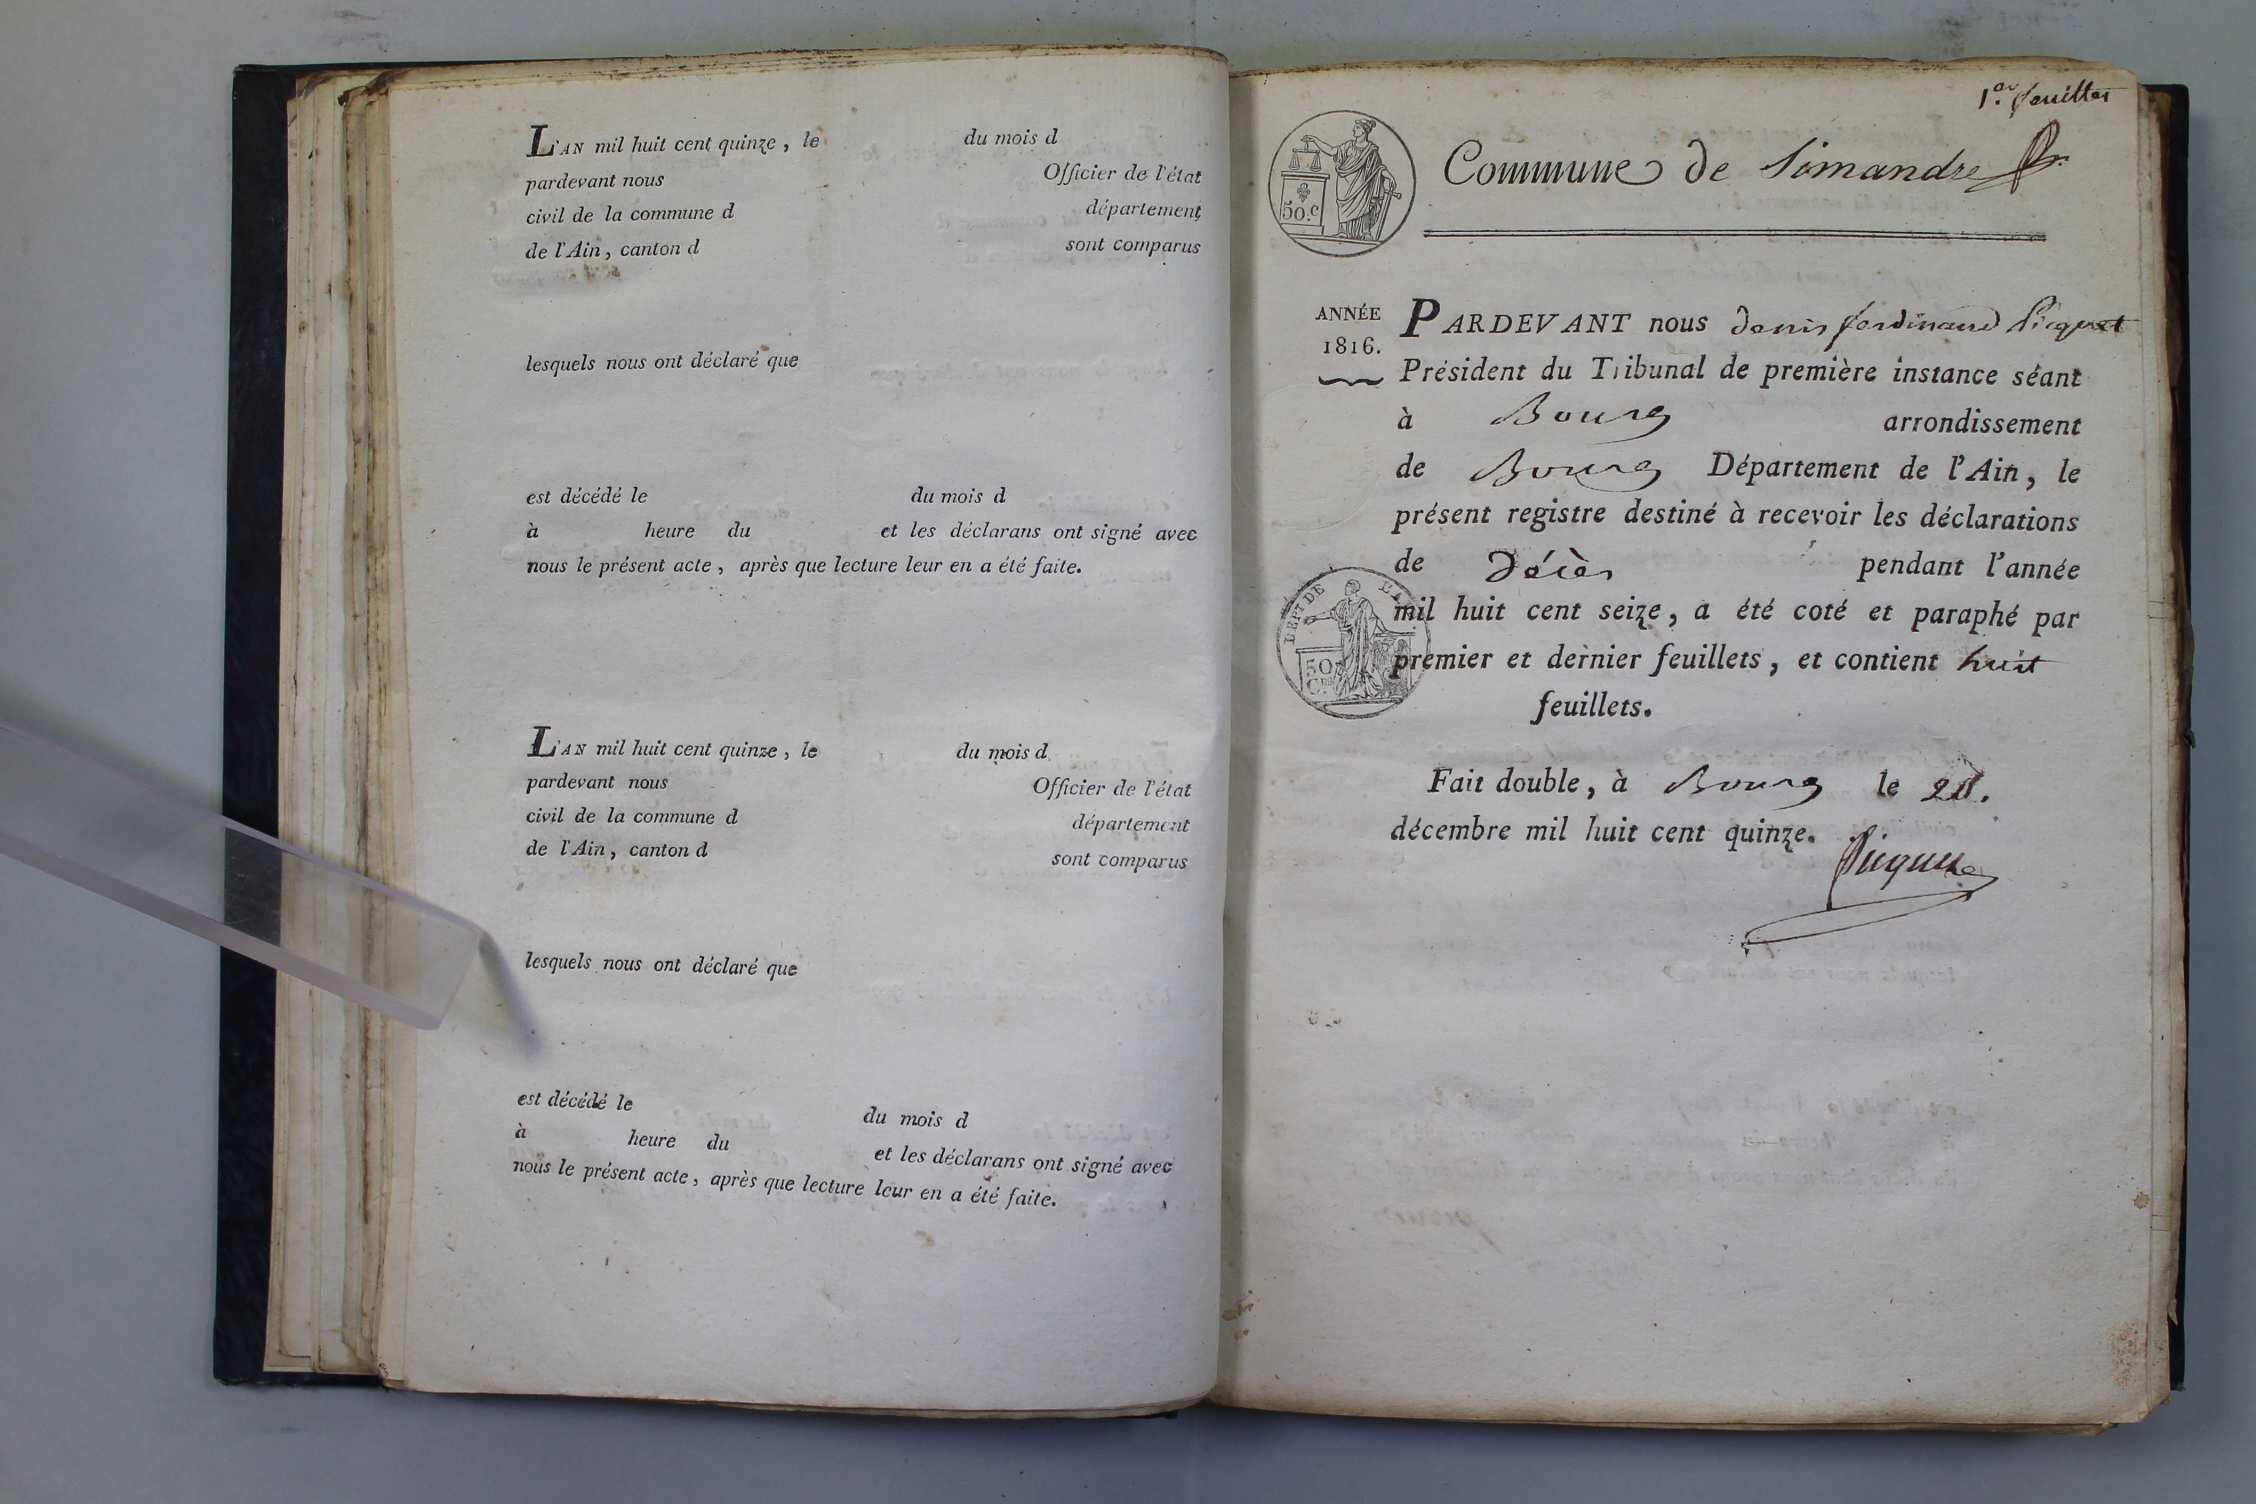 L'AN mil huit cent quinze, le du mois d
pardevant nous Officier de l'état
civil de la commune d département
de l'Ain, canton d sont comparus
lesquels nous ont déclaré que
est décédé le du mois d
à heure du et les déclarans ont signé avec
nous le présent acte, après que lecture leur en a été faite.
L'AN mil huit cent quinze, le du mois d
pardevant nous Officier de l'état
civil de la commune d département
de l'Ain, canton d sont comparus
lesquels nous ont déclaré que
est décédé le du mois d
à heure du et les déclarans ont signé avec
nous le présent acte, après que lecture leur en a été faite.
1.er feuillet
Commune de Simandre
50.c
ANNÉE
1816.
PARDEVANT nous Denis ferdinand Picquet
Président du Tribunal de première instance séant
à Bourg arrondissement
de Bourg Département de l'Ain, le
présent registre destiné à recevoir les déclarations
de Décès pendant l'année
mil huit cent seize, a été coté et paraphé par
premier et dernier feuillets, et contient huit
feuillets.
DEPT DE L'AIN
50
Fait double, à Bourg le
décembre mil huit cent quinze.
Picquet